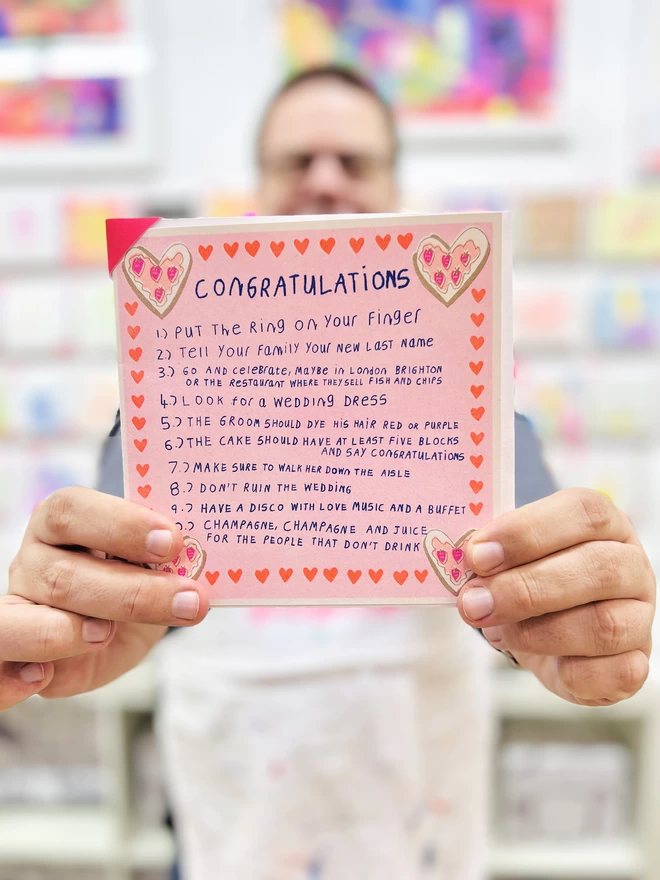 CONGRATULATIONS
1.) PUT The Ring on Your Finger
2.) Tell Your Family Your New Last Name
3.) GO AND celeBrATe, MAYBe in London BRIGHTON
OR THE RESTAURANT WHERE THEY SELL FISH AND CHIPS
4.) LOOK for a WeDDinG DRESS
5.) THE GROOM SHOULD DYE HIS HAIR RED OR PURPLE
6.) THE CAKE SHOULD HAVE AT LEAST FIVE BLOCKS
AND SAY CONGRATULATIONS
7.) MAKE SURE TO WALK HER DOWN THE AISLE
8.) DON'T RUIN THE WEDDING
9.) HAVE A DISCO WITH LOVE MUSIC AND A BUFFET
0.) CHAMPAGNE, CHAMPAGNE AND JUICE
FOR THE PEOPLE THAT DON'T DRINK